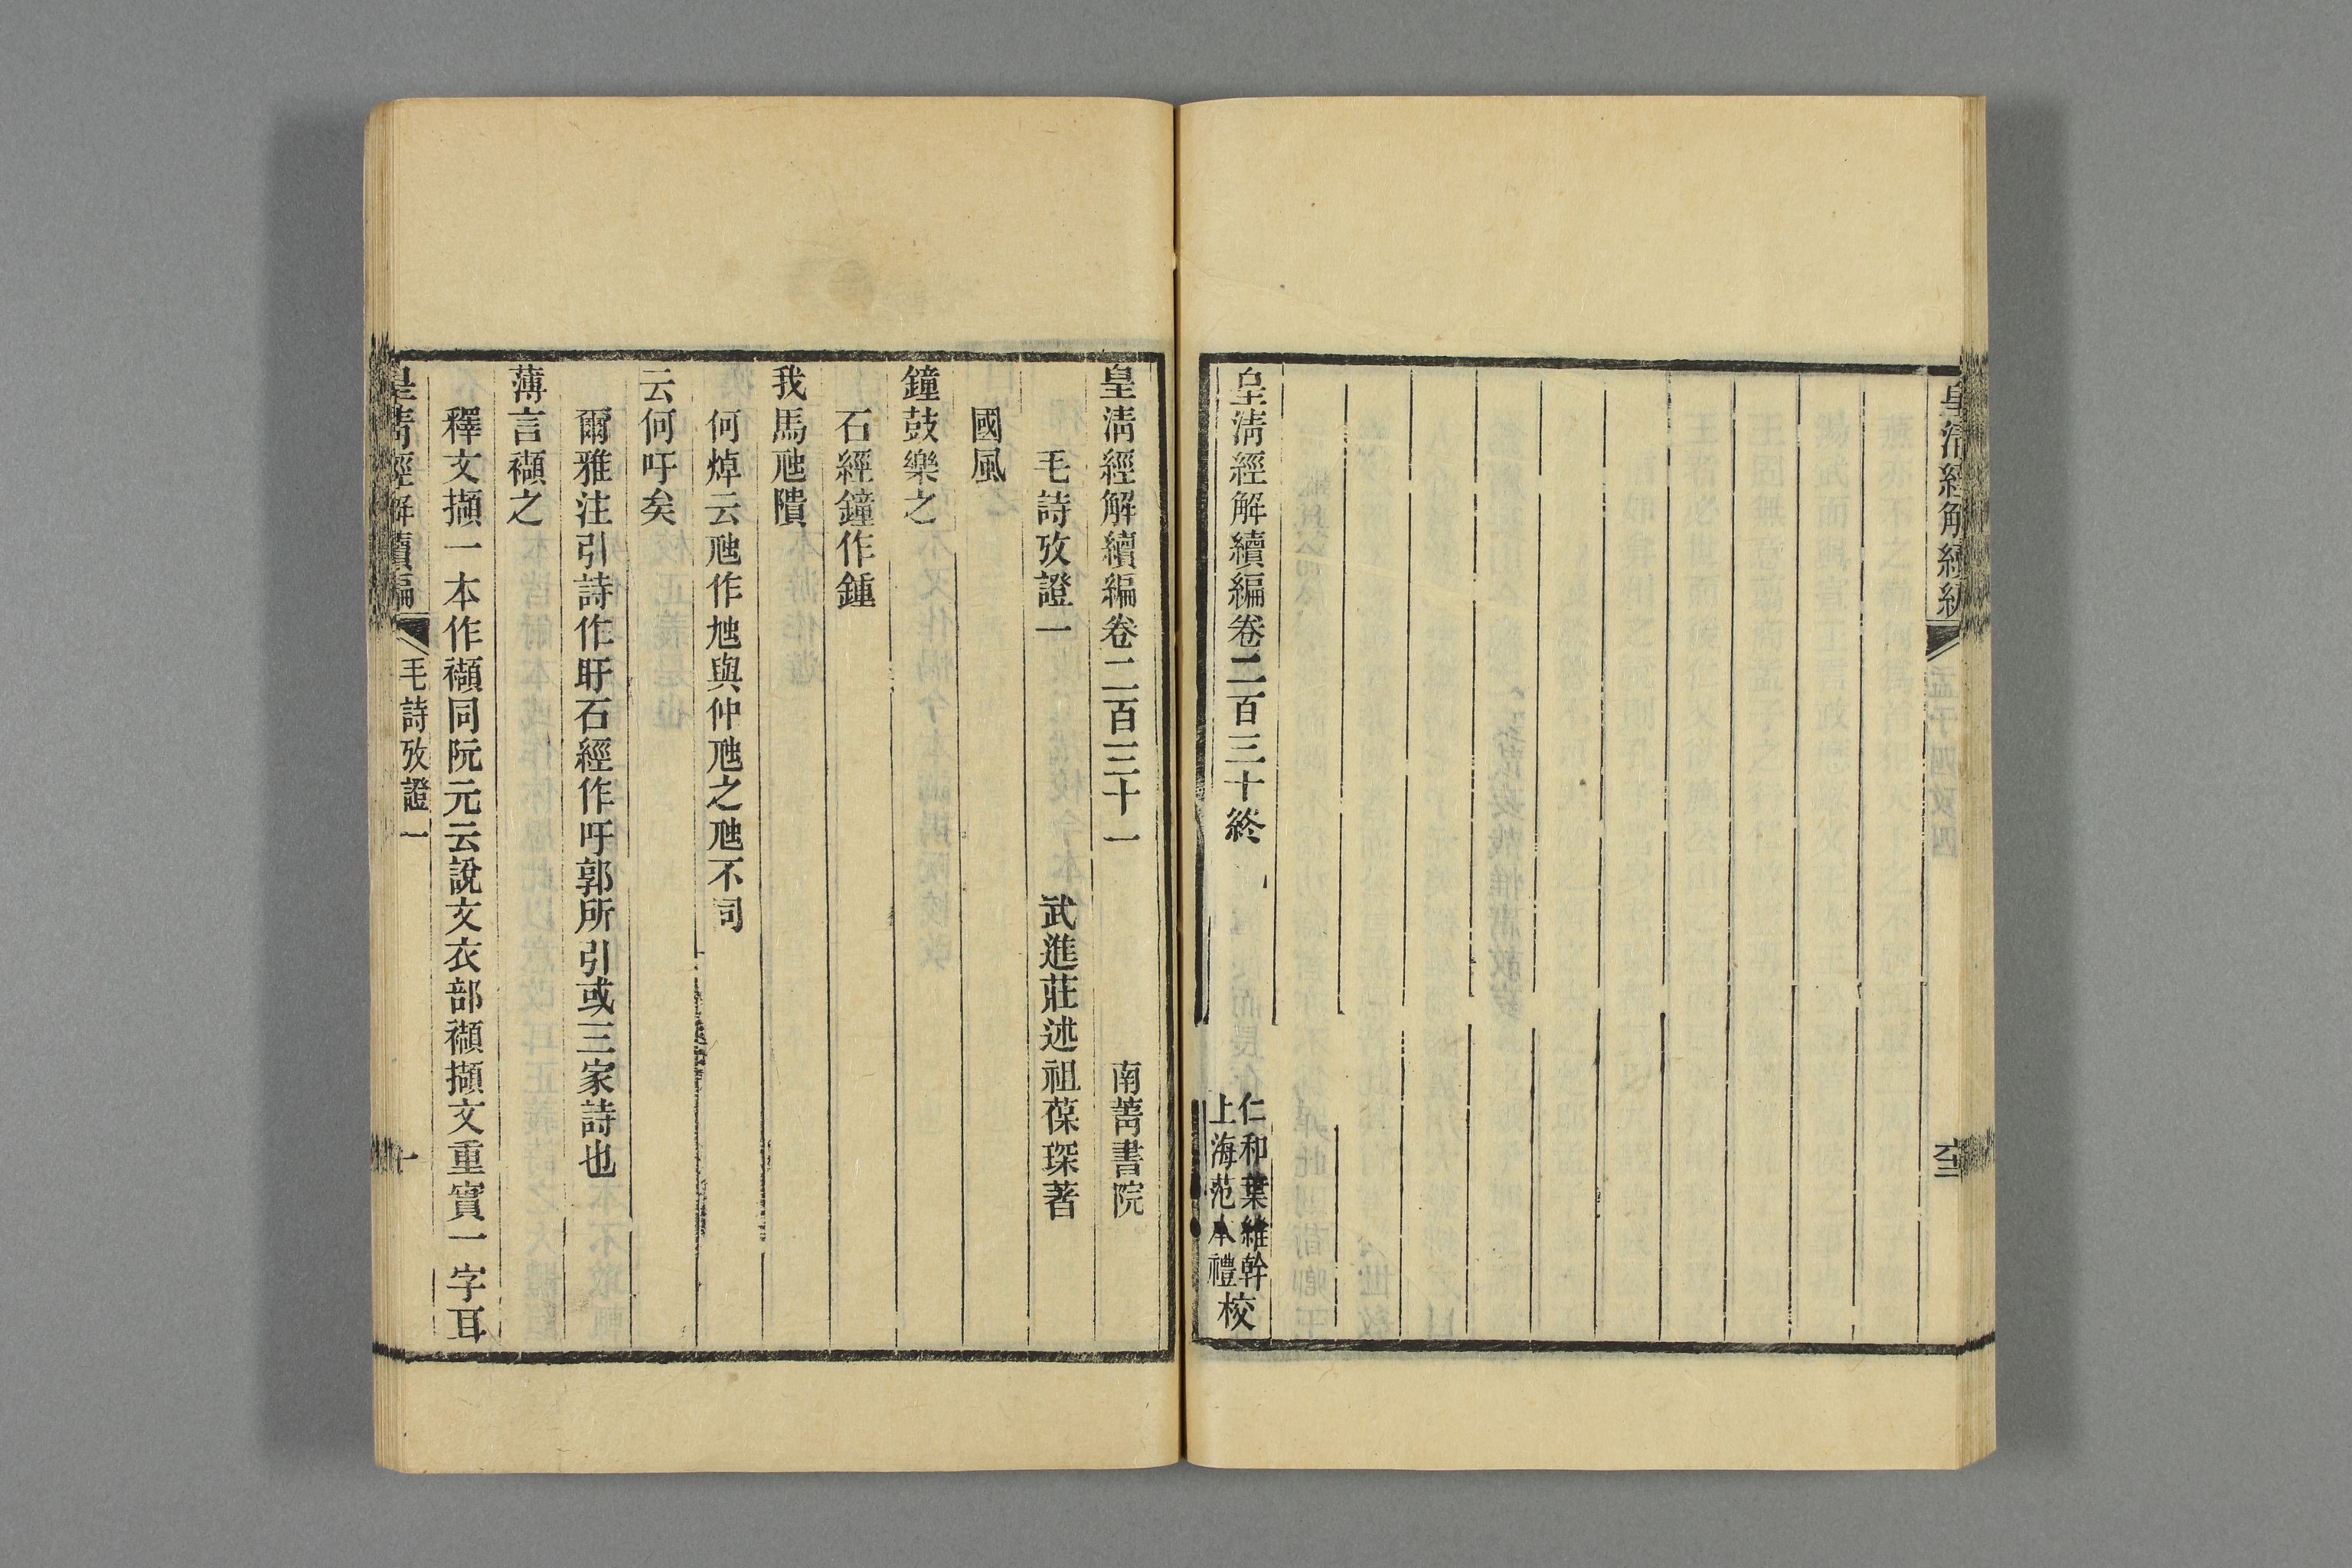 皇清經解續編
孟子四攷四
皇清經解續編卷二百三十終
仁和葉維幹
上海范本禮
校
皇清經解續編卷二百三十一
南菁書院
毛詩攷證一
武進莊述祖葆琛著
國風
鐘鼓樂之
石經鐘作鍾
我馬虺隤
何焯云虺作虺與仲虺之虺不同
云何吁矣
爾雅注引詩作盱石經作吁郭所引或三家詩也
薄言襭之
釋文擷一本作襭同阮元云說文衣部襭擷文重實一字耳
皇清經解續編
毛詩攷證一
一